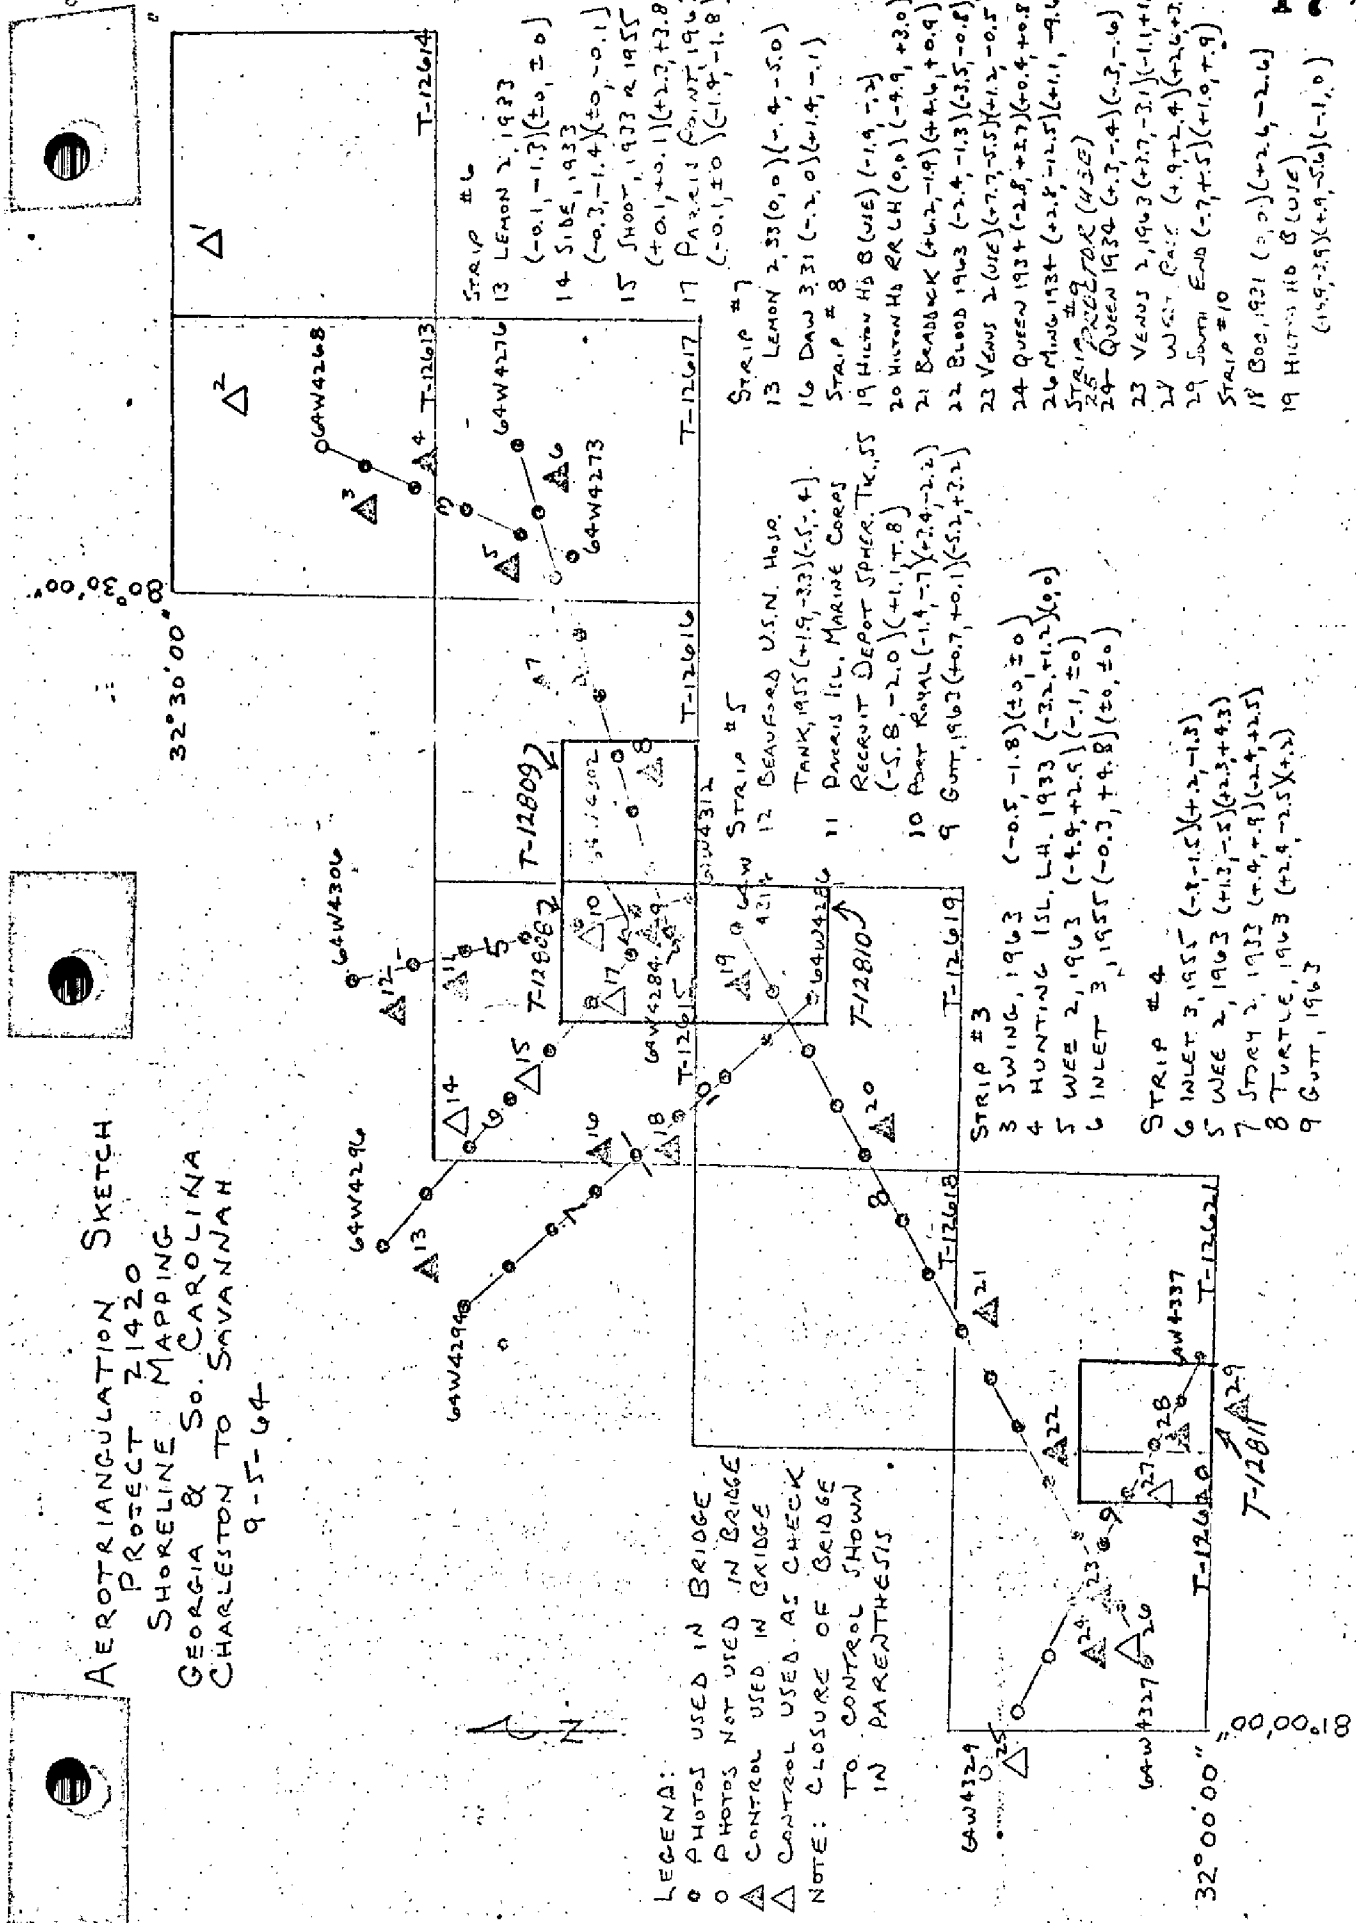 AEROTRIANGULATION SKETCH
PROJECT 21420
SHORELINE MAPPING
GEORGIA & SO. CAROLINA
CHARLESTON TO SAVANNAH
9-5-64
LEGEND:
PHOTOS USED IN BRIDGE
PHOTOS NOT USED IN BRIDGE
CONTROL USED IN BRIDGE
CONTROL USED AS CHECK
NOTE: CLOSURE OF BRIDGE
TO CONTROL SHOWN
IN PARENTHESIS
N
32°30'00"
80°30'00"
32°00'00"
81°00'00"
T-12614
T-12613
T-12617
T-12616
T-12615
T-12619
T-12618
T-12621
T-12620
T-12809
T-12808
T-12810
T-12811
64W4268
64W4276
64W4273
64W4306
64W4312
64W4284
64W4286
64W4296
64W4294
64W4337
64W4329
64W4327
1
2
3
4
5
6
7
8
9
10
11
12
13
14
15
16
17
18
19
20
21
22
23
24
25
26
27
28
29
STRIP #3
3 SWING, 1963 (-0.5, -1.8)(±0, ±0)
4 HUNTING ISL. LH. 1933 (-3.2, +1.2)(0,0)
5 WEE 2, 1963 (-4.4, +2.9)(-.1, ±0)
6 INLET 3, 1955 (-0.3, +4.8)(±0, ±0)
STRIP #4
6 INLET 3, 1955 (-.8, -1.5)(+.2, -1.3)
5 WEE 2, 1963 (+1.3, -.5)(+2.3, +4.3)
7 STORY 2, 1933 (+.4, +.9)(-2.4, +2.5)
8 TURTLE, 1963 (+2.4, -2.5)(+.2)
9 GUTT, 1963
STRIP #5
12 BEAUFORD U.S.N. HOSP.
TANK, 1955 (+1.9, -3.3)(-.5, -.4)
11 PARRIS ISL. MARINE CORPS
RECRUIT DEPOT SPHER. TK., 55
(-5.8, -2.0)(+1.1, +.8)
10 PORT ROYAL (-1.4, -.7)(+3.4, -2.2)
9 GUTT, 1963 (+0.7, +0.1)(-5.2, +3.2)
STRIP #6
13 LEMON 2, 1933
(-0.1, -1.3)(±0, ±0)
14 SIDE, 1933
(-0.3, -1.4)(±0, -0.1)
15 SHOOT, 1933 R 1955
(+0.1, +0.1)(+2.7, +3.8
17 PARRIS POINT, 196
(-0.1, ±0)(-1.4, -1.8)
STRIP #7
13 LEMON 2, 33 (0,0)(-.4, -5.0)
16 DAW 3, 31 (-.2, 0)(+1.4, -.1)
STRIP #8
19 HILTON HD B (USE) (-1.9, -.2)
20 HILTON HD RR LH (0,0)(-4.9, +3.0)
21 BRADDOCK (+6.2, -1.9)(+4.6, +0.9)
22 BLOOD 1963 (-2.4, -1.3)(-3.5, -0.8)
23 VENUS 2 (USE)(+7.7, -5.5)(+1.2, -0.5
24 QUEEN 1934 (-2.8, +3.7)(+0.4, +0.8
26 MING 1934 (+2.8, -12.5)(+1.1, -9.6
STRIP #9
24 QUEEN 1934 (+.3, -.4)(-.3, -.6)
23 VENUS 2, 1963 (+3.7, -3.1)(-1.1, +1.
29 SOUTH END (-.7, +.5)(+1.0, +.9)
STRIP #10
18 BOB, 1931 (0,0)(+2.6, -2.6)
19 HILTON HD B (USE)
(+4.9, -3.9)(+.9, -5.6)(-1, 0)